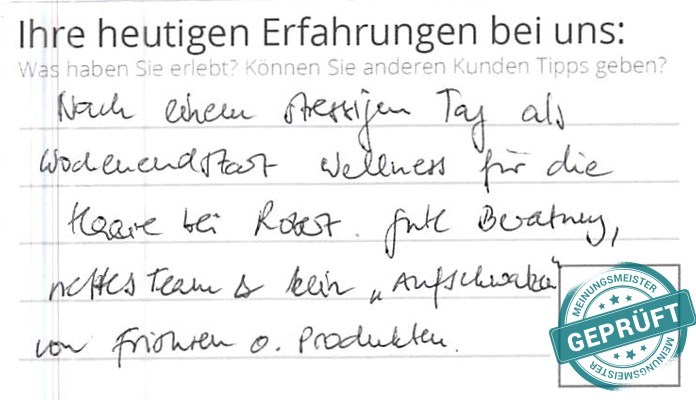 Ihre heutigen Erfahrungen bei uns:
Was haben Sie erlebt? Können Sie anderen Kunden Tipps geben?
Nach einem stressigen Tag als
Wochenendstart Wellness für die
Haare bei Robert. gute Beratung,
nettes Team & kein „Aufschwatzen"
von Frisuren o. Produkten.
MEINUNGSMEISTER
GEPRÜFT
MEINUNGSMEISTER